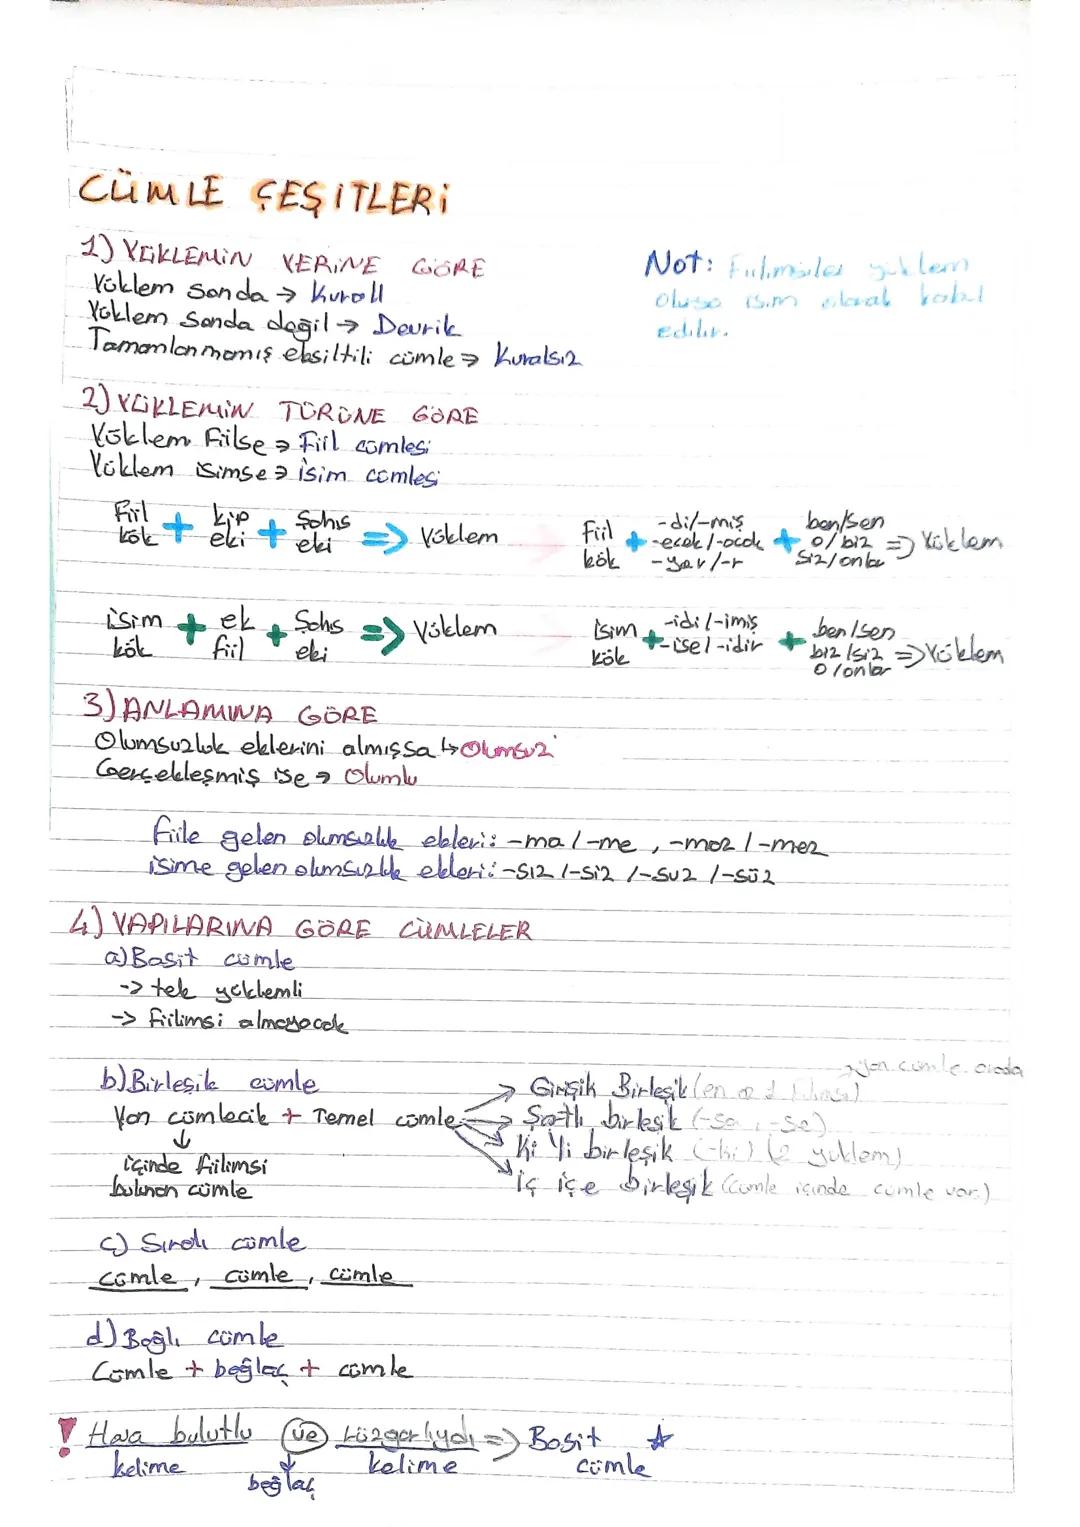 CÜMLE ÇEŞİTLERİ
1) YÜKLEMİN YERİNE GÖRE
Yüklem sonda → Kurallı
Yüklem sonda değil → Devrik
Tamamlanmamış eksiltili cümle → Kuralsız
Not: Fiilimsiler yüklem
olursa isim olarak kabul
edilir.
2) YÜKLEMİN TÜRÜNE GÖRE
Yüklem Fiilse → Fiil cümlesi
Yüklem isimse → isim cümlesi
Fiil kök + kip eki + Şahıs eki => Yüklem
Fiil kök + -di/-miş -ecek/-acak -yor/-r + ben/sen o/biz siz/onlar => Yüklem
isim kök + ek fiil + Şahıs eki => Yüklem
İsim kök + -idi/-imiş -ise/-idir + ben/sen biz/siz o/onlar => Yüklem
3) ANLAMINA GÖRE
Olumsuzluk eklerini almışsa ↳ Olumsuz
Gerçekleşmiş ise → Olumlu
fiile gelen olumsuzluk ekleri: -ma/-me, -maz/-mez
isime gelen olumsuzluk ekleri: -sız/-siz/-suz/-süz
4) YAPILARINA GÖRE CÜMLELER
a) Basit cümle
-> tek yüklemli
-> fiilimsi almayacak
b) Birleşik cümle
Yan cümlecik + Temel cümle
↓
içinde fiilimsi
bulunan cümle
→ yan cümle orada
→ Girişik Birleşik (en az 1 fiilimsi)
→ Şartlı birleşik (-sa, -se)
→ Ki'li birleşik (-ki) (2 yüklem)
→ iç içe birleşik (cümle içinde cümle var.)
c) Sıralı cümle
cümle, cümle, cümle
d) Bağlı cümle
Cümle + bağlaç + cümle
! Hava bulutlu ve rüzgarlıydı => Basit ☆
kelime bağlaç kelime cümle